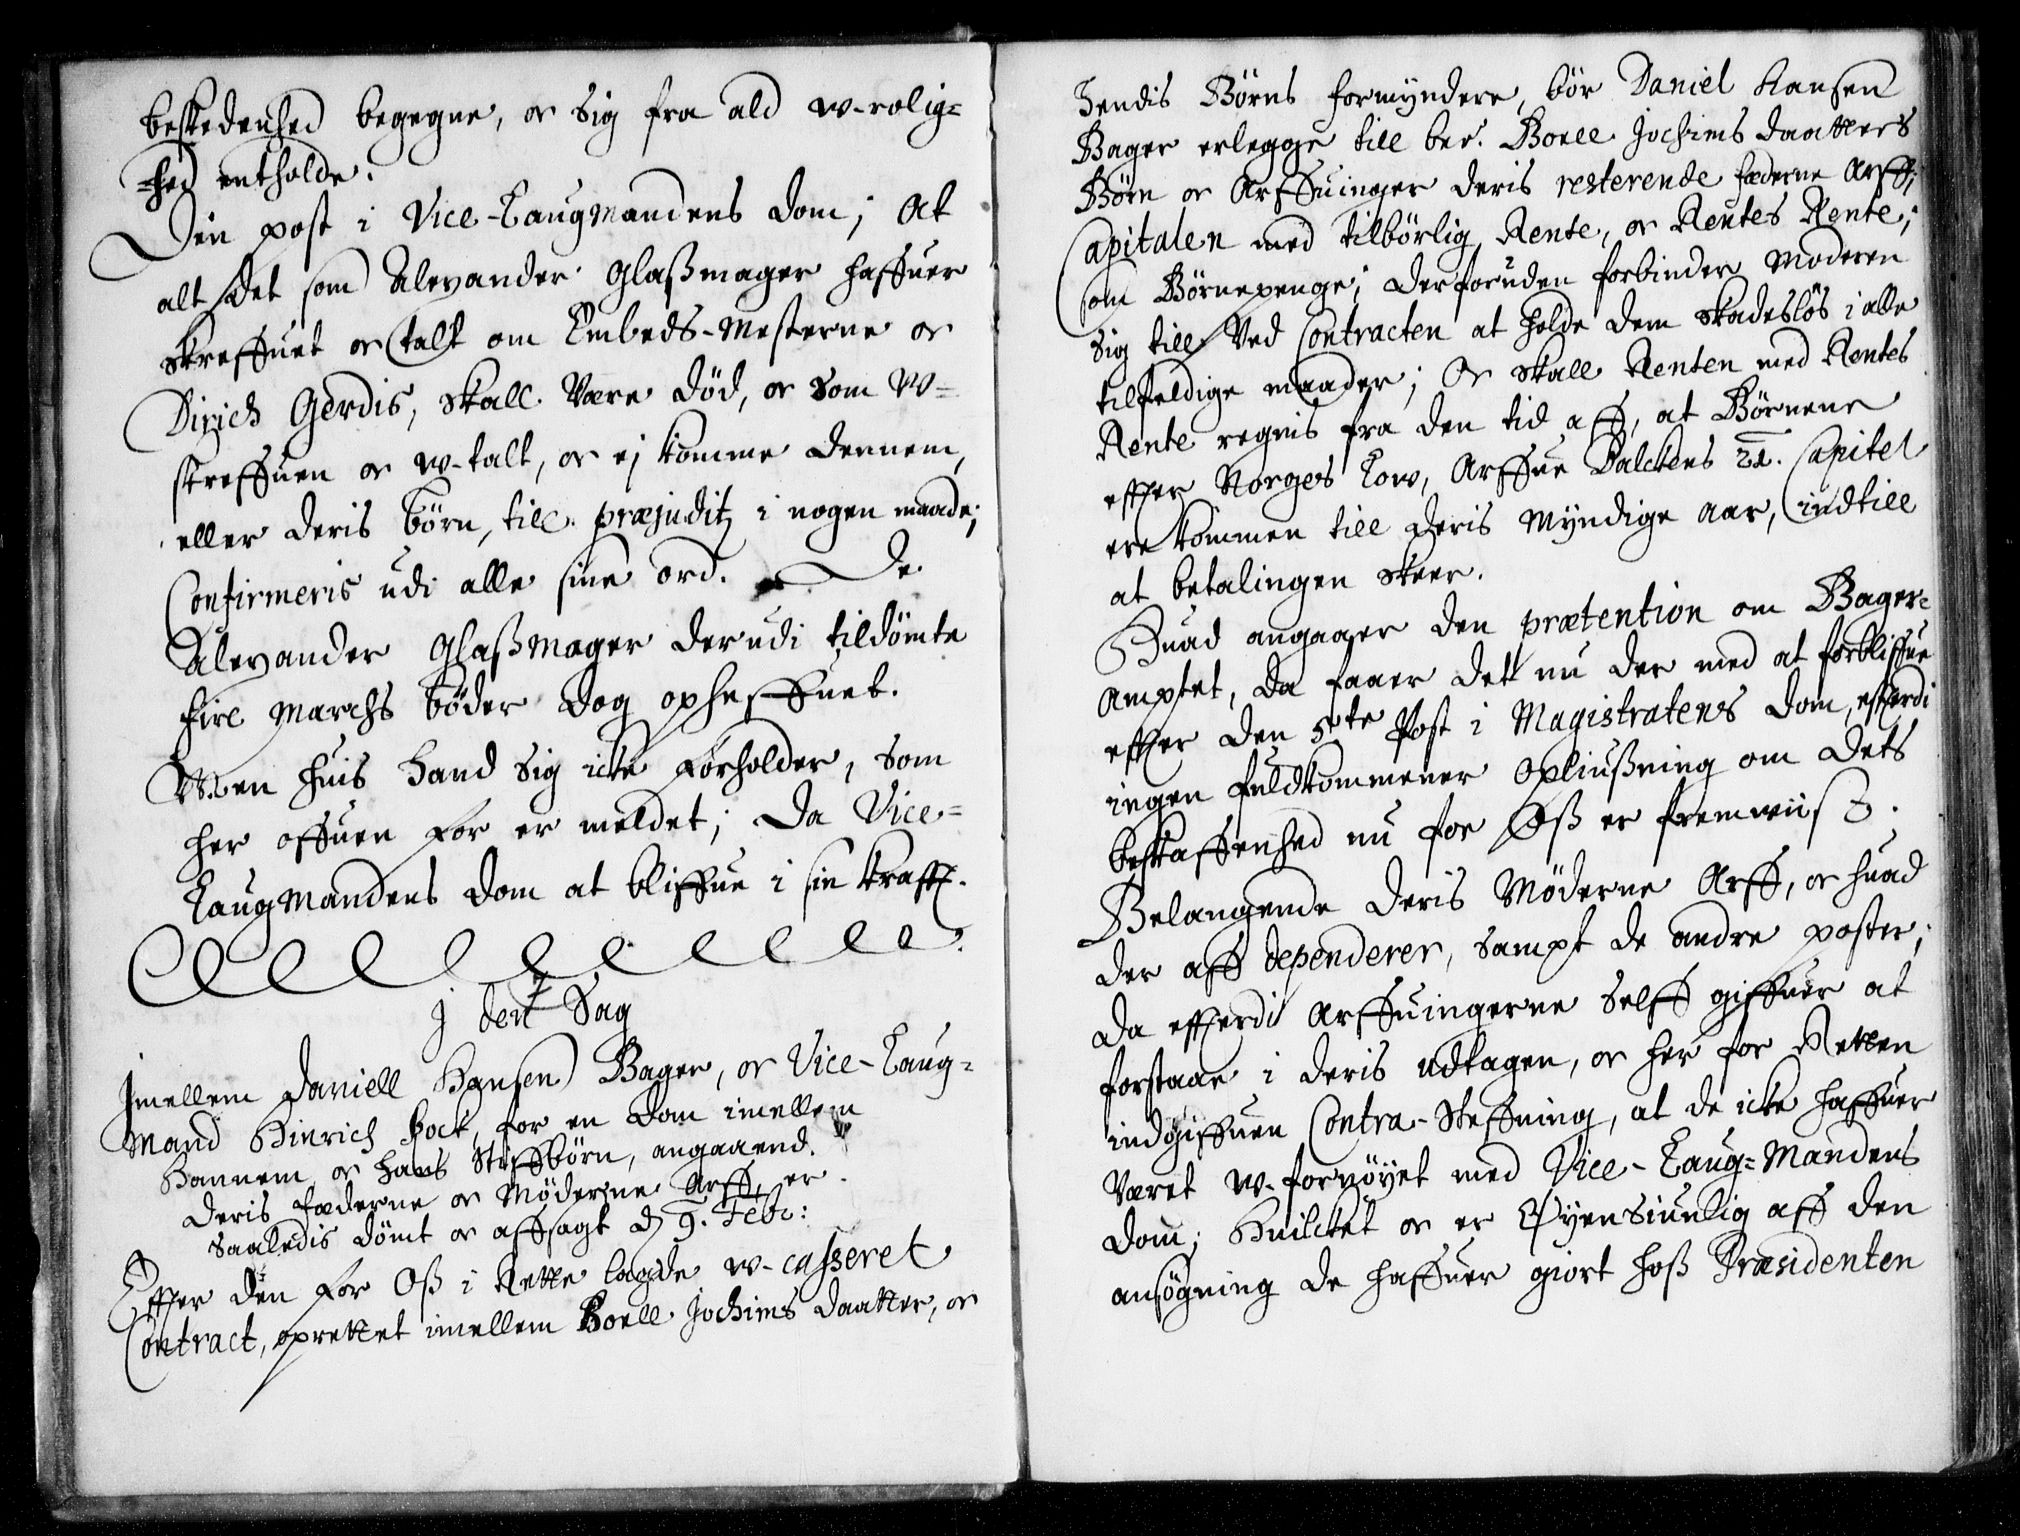 beskedenhed begegne, oc sig fra ald w-rolig=
=hed entholde.
Den post i Vice-Laugmandens dom; at
alt det som Alexander Glaßmager haffuer
skreffuet oc talt om Embeds-Mesterne oc
Dirich Gerdis, skall være død, oc som w=
skreffuen oc w-talt, oc ej komme dennem,
eller deris børn, till præjuditz i nogen maade;
Confirmeris udi alle sine ord. De
Alexander Glaßmager derudi tildömte
fire Marchs bøder dog opheffuet.
Men huis hand sig icke forholder, som
her offuen for er meldet; da Vice=
Laugmandens dom at bliffue i sin krafft.
J den Sag
Jmellem Daniell Hansen Bager, oc Vice-Laug=
mand Hinrich Hock, for en dom imellem
hannem oc hans Stiffbørn, angaaend.
deris fæderne oc Møderne Arff, er
saaledis dömt oc affsagt d 9. Febr:
Effter den for Oß i Rette lagde w-casseret
Contract, oprettet imellem Boell Jochims daatter, oc
Hendis Börns formyndere, bör Daniel Hansen
Bager erlegge till ber. Boell Jochims daatters
Börn oc Arffuinger deris resterende fæderne Arff;
Capitalen med tilbörlig Rente, oc Rentes Rente;
som Börnepenge; derforuden forbinder Moderen
sig till ved Contracten at holde dem skadeslös i alle
tilfeldige maader; Oc skall Renten med Rentes
Rente regnis fra den tid aff, at Börnene
effter Norges Low, Arffue Balckens 21. Capitel
ere kommen till deris Myndige aar, indtill
at betalingen skeer.
Huad angaaer den prætention om Bager=
amptet, da faaer det nu der med at forbliffue
effter den 5te Post i Magistratens dom, efftterdi
ingen fuldkommener Opliußning om dets
beskaffenhed nu for Oß er fremwiist.
Belangende deris Møderne Arff, oc huad
der aff dependerer, sampt de andre poster;
da effterdi Arffuingerne selff giffuer at
forstaae i deris udtagen, oc her for Retten
indgiffuen Contra-Steffning, at de icke haffuer
været w-fornøyet med Vice-Laug=Mandens
dom; Huilcket oc er Øyensiunlig aff den
ansögning de haffuer giort hoß Præsidenten